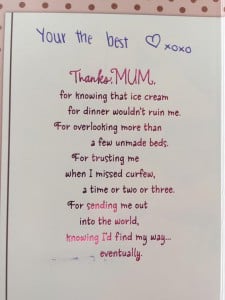 Your the best ♡ xoxo
Thanks, MUM,
for knowing that ice cream
for dinner wouldn't ruin me.
For overlooking more than
a few unmade beds.
For trusting me
when I missed curfew,
a time or two or three.
For sending me out
into the world,
knowing I'd find my way...
eventually.